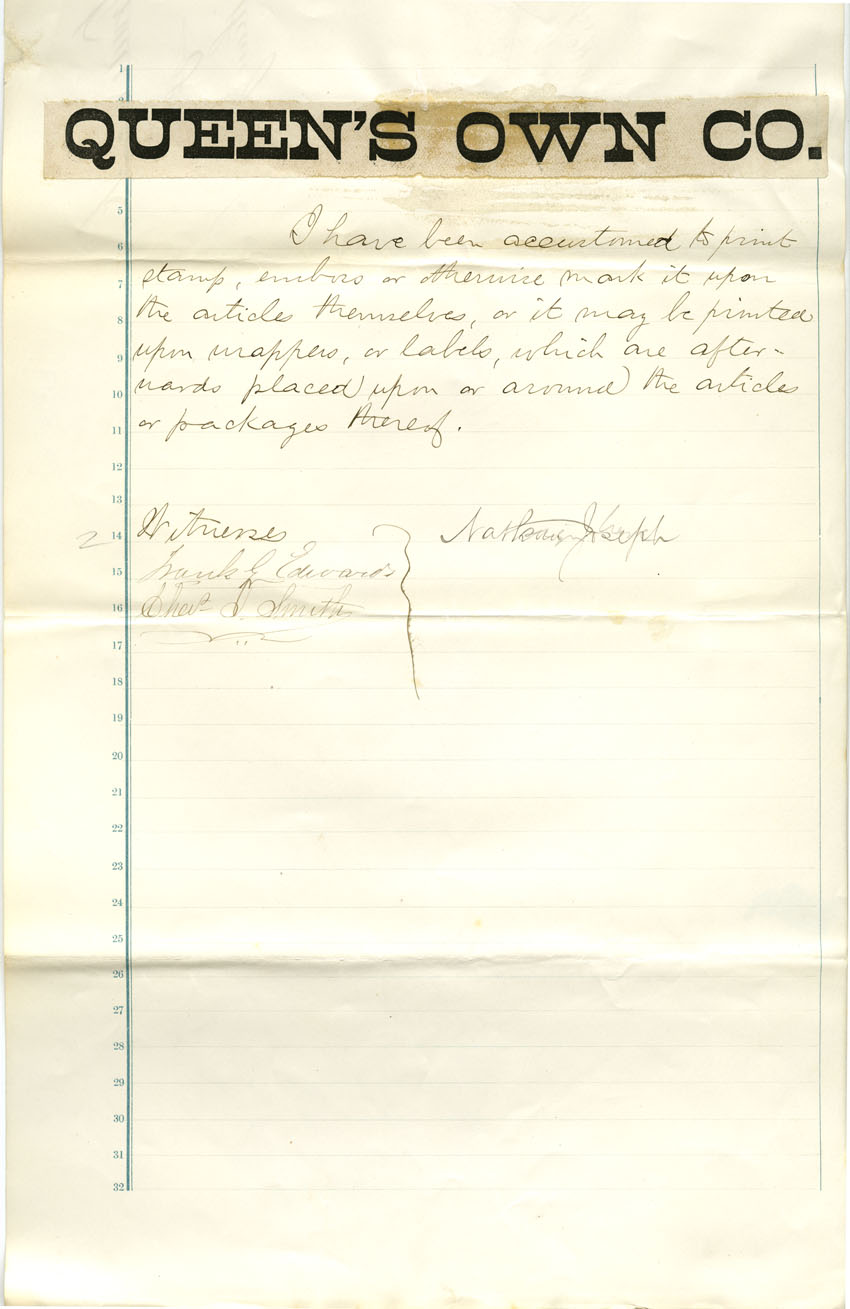 1
QUEEN'S OWN CO.
5
I have been accustomed to print
6
stamp, emboss or otherwise mark it upon
7
the articles themselves, or it may be printed
8
upon wrappers, or labels, which are after-
9
wards placed upon or around the articles
10
or packages thereof.
11
12
13
14 Witnesses Nathan Joseph
2
15 Frank G. Edwards
16 Chas. J. Smith
17
18
19
20
21
22
23
24
25
26
27
28
29
30
31
32